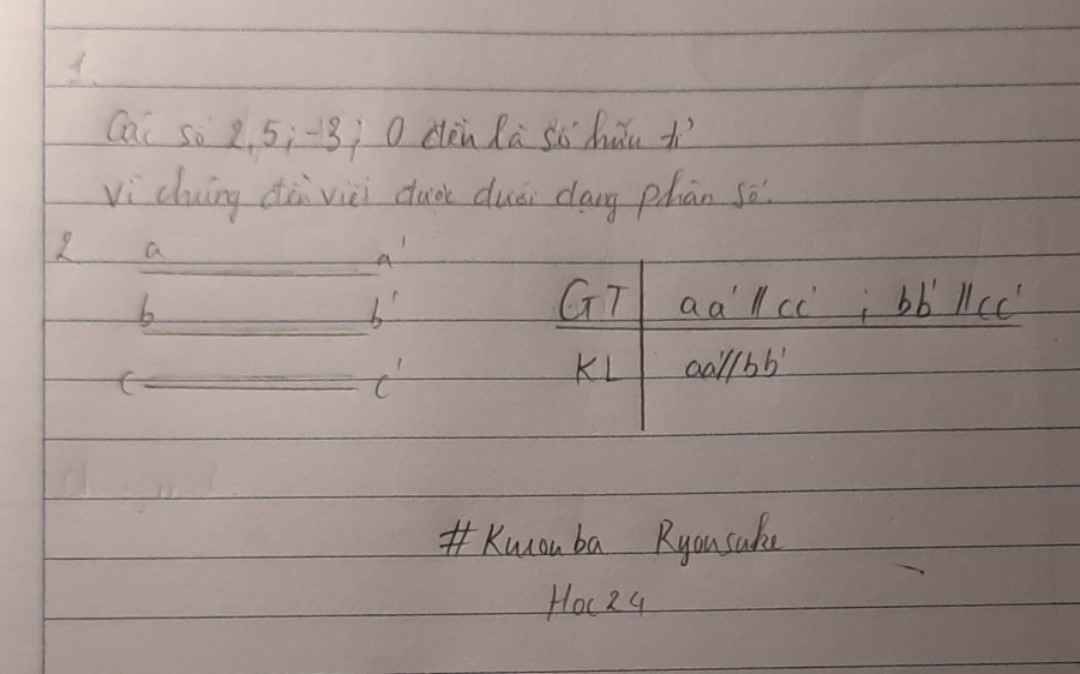 1.
Các số 2,5; -3; 0 đều là số hữu tỉ
Vì chúng đều viết được dưới dạng phân số.
2
a a'
b b'
c c'
GT aa' // cc' ; bb' // cc'
KL aa' // bb'
# Kurouba Ryousuke
Hoc24